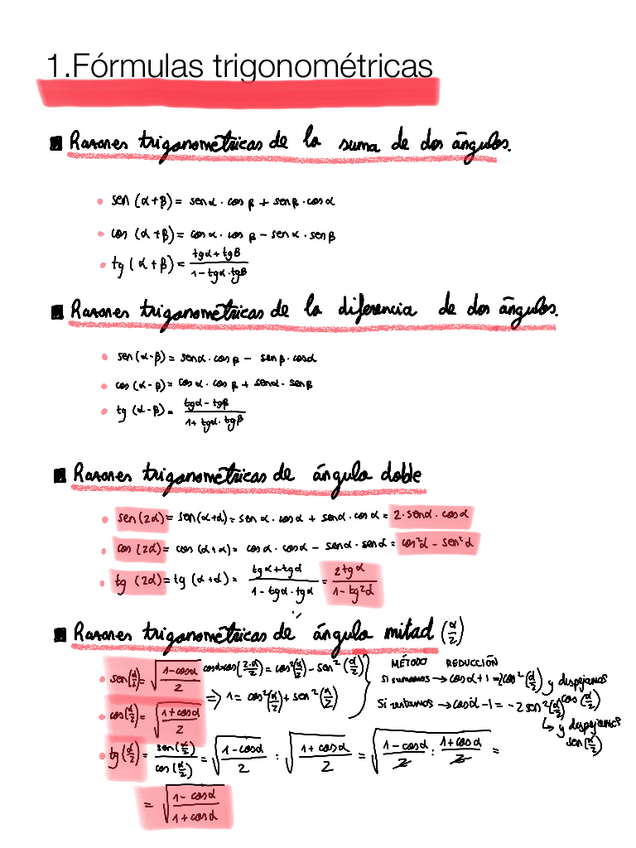 1.Fórmulas trigonométricas
Razones trigonométricas de la suma de dos ángulos.
sen (α+β) = senα · cos β + senβ · cosα
cos (α+β) = cosα · cos β − senα · senβ
tg (α+β) = (tgα+tgβ)/(1−tgα·tgβ)
Razones trigonométricas de la diferencia de dos ángulos.
sen (α-β) = senα · cos β − senβ · cosα
cos (α-β) = cosα · cos β + senα · senβ
tg (α-β) = (tgα−tgβ)/(1+tgα·tgβ)
Razones trigonométricas de ángulo doble
sen(2α) = sen(α+α) = senα · cosα + senα · cosα = 2·senα·cosα
cos (2α) = cos (α+α) = cosα · cosα − senα · senα = cos²α − sen²α
tg (2α) = tg (α+α) = (tgα+tgα)/(1−tgα·tgα) = 2tgα/(1−tg²α)
Razones trigonométricas de ángulo mitad (α/2)
sen(α/2) = √((1−cosα)/2)
cosα=cos(2·α/2) = cos²(α/2) − sen²(α/2)
⇒ 1 = cos²(α/2) + sen²(α/2)
MÉTODO REDUCCIÓN
Si sumamos → cosα+1 = 2cos²(α/2) y despejamos
cos(α/2)
Si restamos → cosα−1 = −2sen²(α/2)
↳ y despejamos
sen(α/2)
cos(α/2) = √((1+cosα)/2)
tg(α/2) = sen(α/2)/cos(α/2) = √((1−cosα)/2) : √((1+cosα)/2) = √((1−cosα)/2 : (1+cosα)/2) =
= √((1−cosα)/(1+cosα))